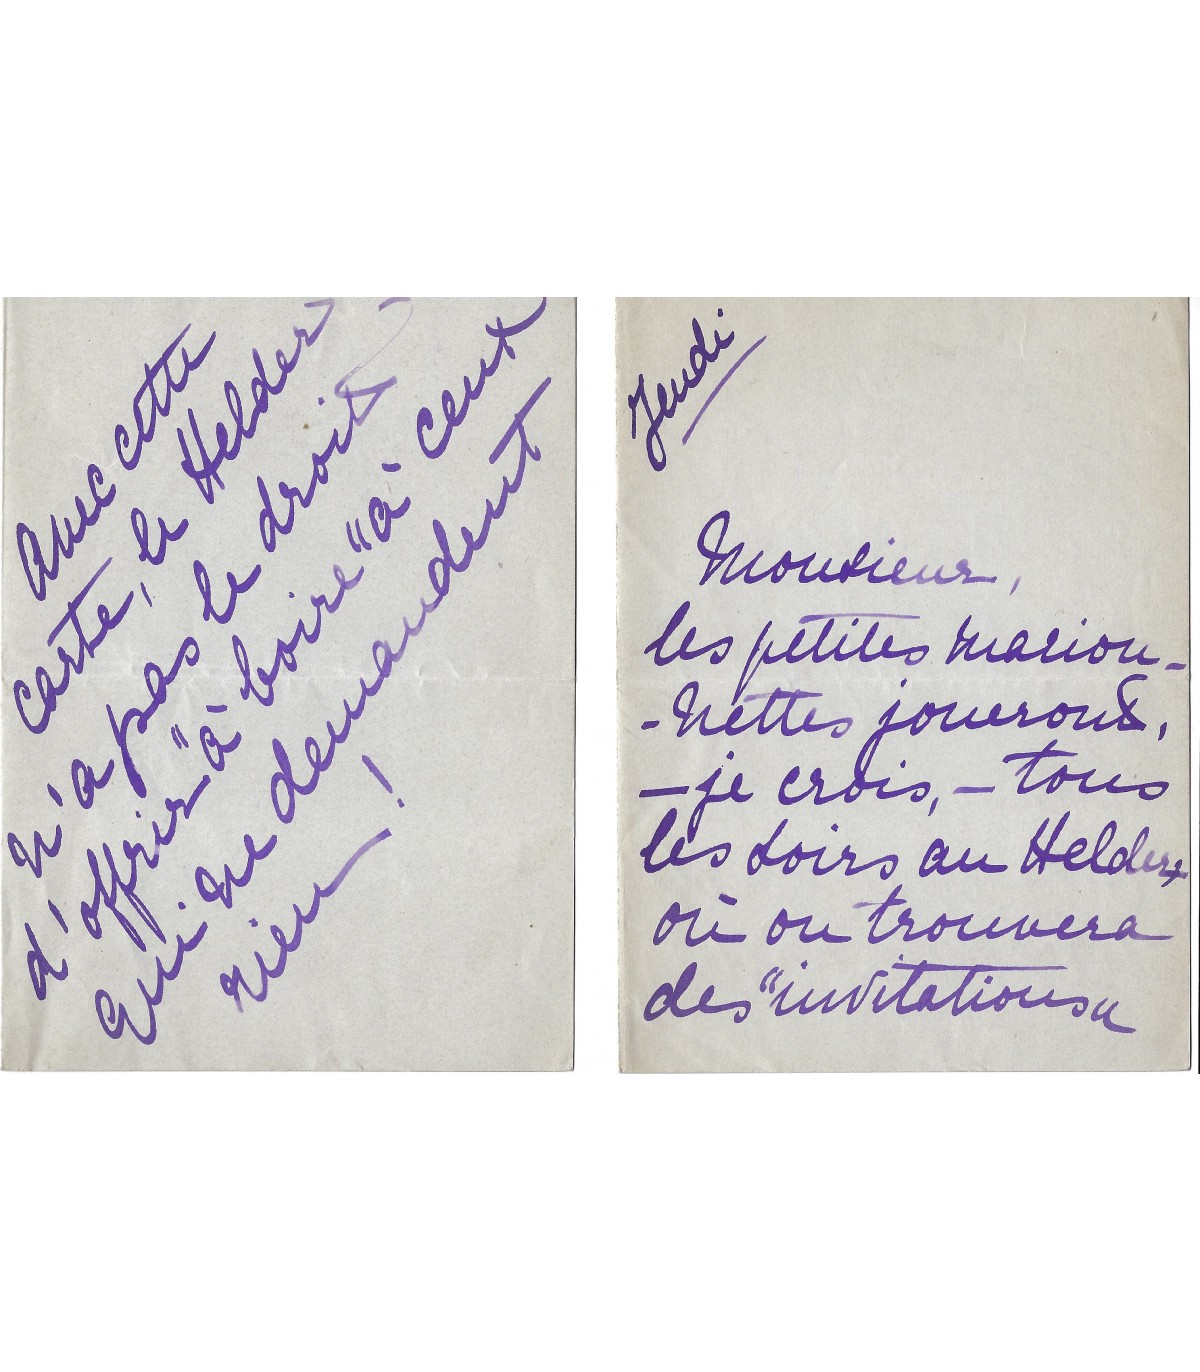 avec cette
carte, le Helder
n'a pas le droit
d'offrir "à boire" à ceux
qui ne demandent
rien !
Jeudi
Monsieur,
les petites marion-
-nettes joueront,
- je crois, - tous
les soirs au Helder
où on trouvera
des "invitations"